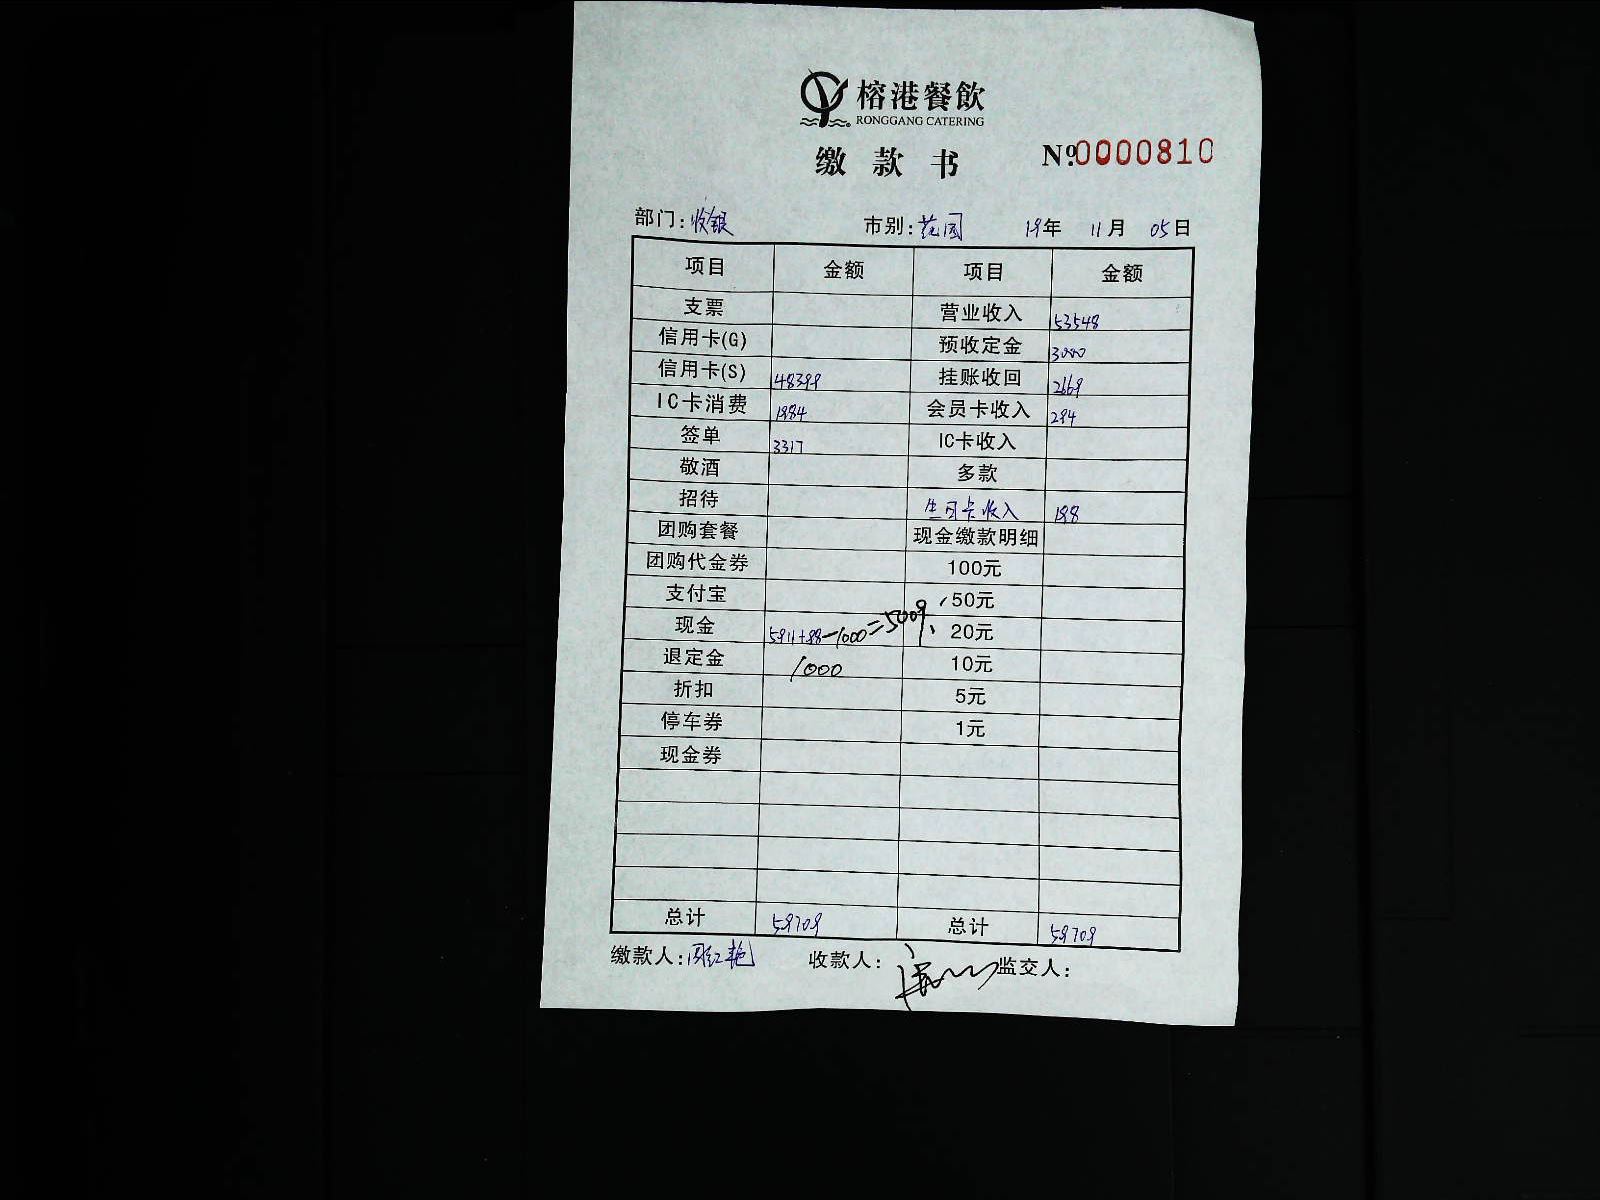 榕港餐飲
RONGGANG CATERING
缴款书 №0000810
部门:收银 市别:花园 19年 11月 05日
项目 金额 项目 金额
支票 营业收入 53548
信用卡(G) 预收定金 3000
信用卡(S) 48399 挂账收回 2669
IC卡消费 1984 会员卡收入 294
签单 3317 IC卡收入
敬酒 多款
招待 生日卡收入 198
团购套餐 现金缴款明细
团购代金券 100元
支付宝 50元
现金 5911+98-1000=5009 20元
退定金 1000 10元
折扣 5元
停车券 1元
现金券
总计 59709 总计 59709
缴款人:周红艳 收款人: 监交人: